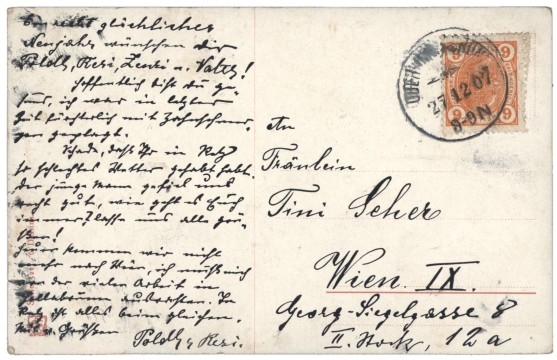 Ein recht glückliches
Neujahr wünschen dir
Poldl, Resi, Lenzi u. Vater!
Hoffentlich bist du ge-
sund, ich war in letzter
Zeit fürchterlich mit Zahnschmer-
zen geplagt.
Schade, dass Ihr in Retz
so schlechtes Wetter gehabt habt.
der junge Mann gefiel uns
recht gut, wie geht es Euch
immer? lasse uns alle grü-
ßen!
Heuer kommen wir nicht
mehr nach Wien, ich muß mich
von der vielen Arbeit in
Hollabrunn ausrasten. In
Retz ist alles beim gleichen.
Mit Grüßen
Poldl u. Resi.
27 12 07
8-9N
6 6
6 6
An
Fräulein
Tini Scher
Wien IX.
Georg-Siegelgasse 8
II. Stock, 12a